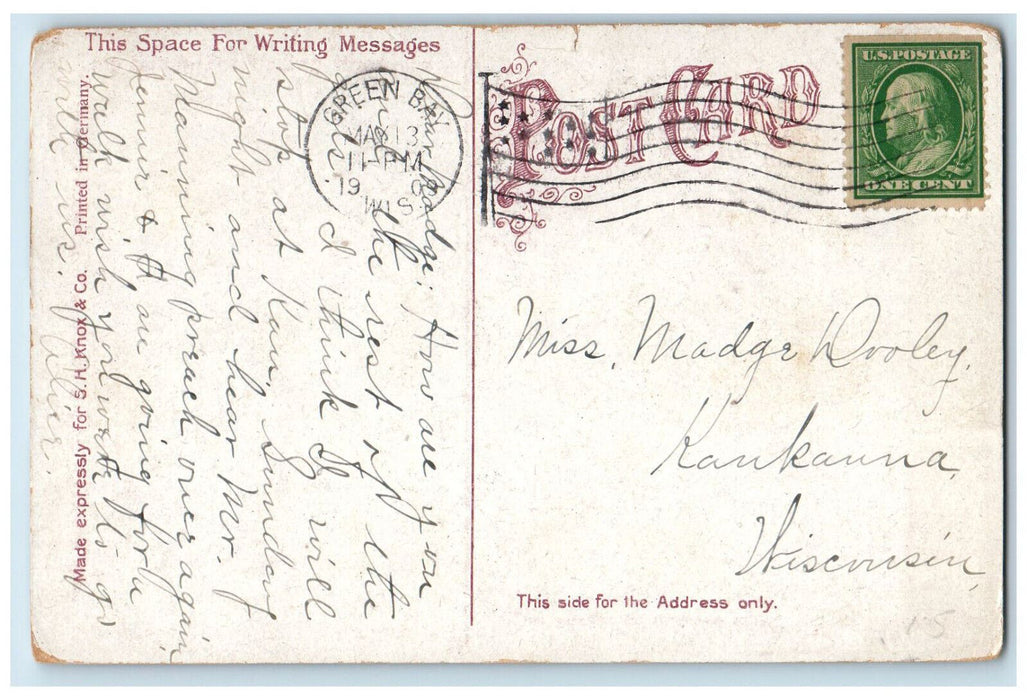 This Space For Writing Messages
Dear Madge; How are you
and the rest of the
I think I will
stop at Kau. Sunday
night and hear Mr.
Manning preach once again
Jennie & I are going for a
walk wish you were to go
with us. Alice.
Made expressly for S. H. Knox & Co. Printed in Germany.
GREEN BAY
MA 13
11-PM
19 0
WIS
POST CARD
U.S. POSTAGE
ONE CENT
Miss. Madge Dooley.
Kaukauna,
Wisconsin,
This side for the Address only.
15